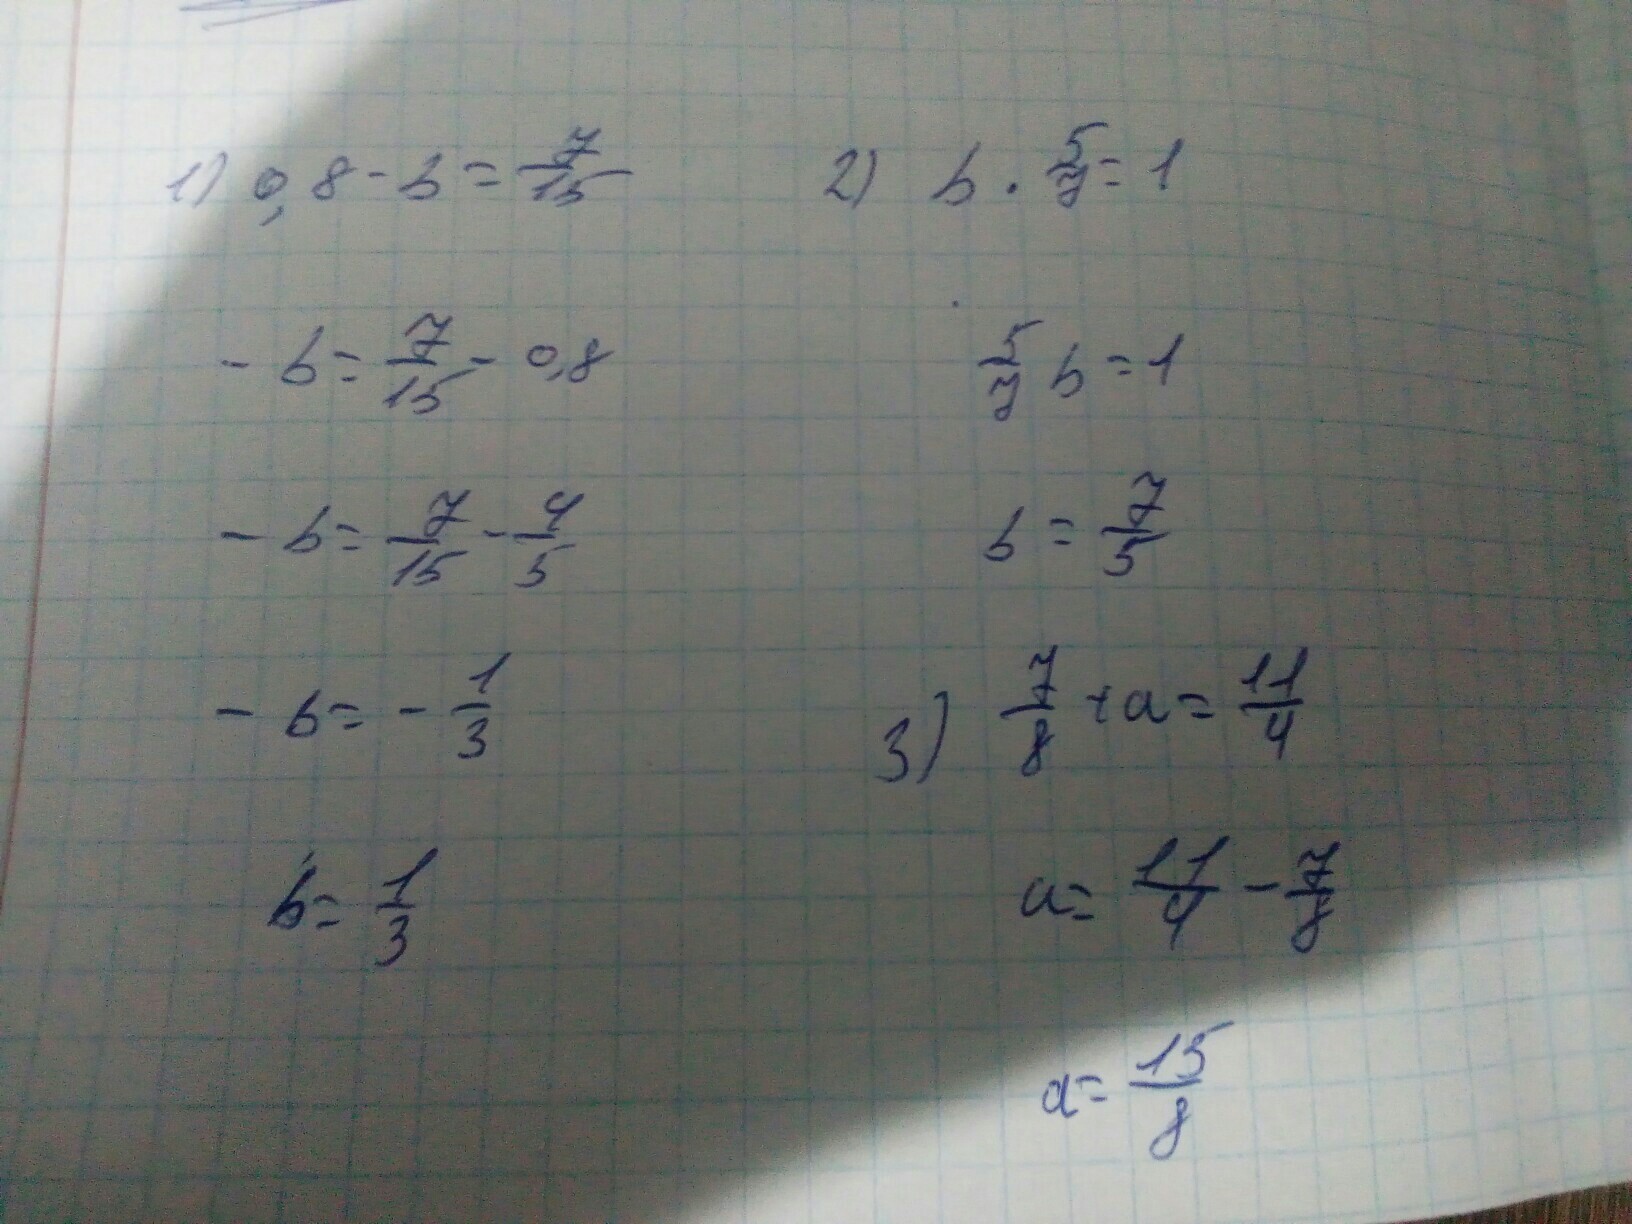 1) 0,8 - b = 7/15
- b = 7/15 - 0,8
- b = 7/15 - 4/5
- b = - 1/3
b = 1/3
2) b · 5/7 = 1
5/7 b = 1
b = 7/5
3) 7/8 + a = 11/4
a = 11/4 - 7/8
a = 15/8